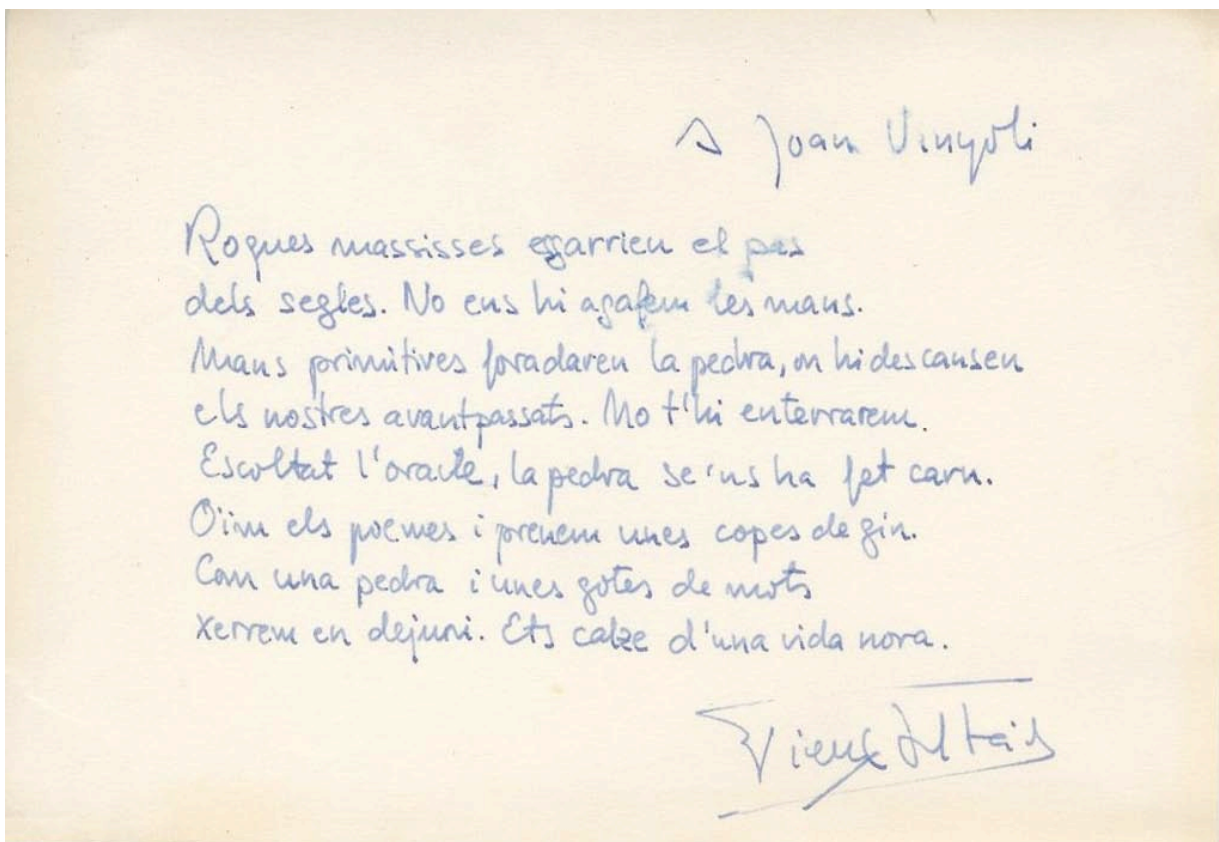 A Joan Vinyoli
Roques massisses esgarrien el pas
dels segles. No ens hi agafem les mans.
Mans primitives foradaren la pedra, on hi descansen
els nostres avantpassats. No t'hi enterrarem.
Escoltat l'oracle, la pedra se'ns ha fet carn.
Oïm els poemes i prenem unes copes de gin.
Com una pedra i unes gotes de mots
xerrem en dejuni. Ets calze d'una vida nova.
Vicenç Altaió